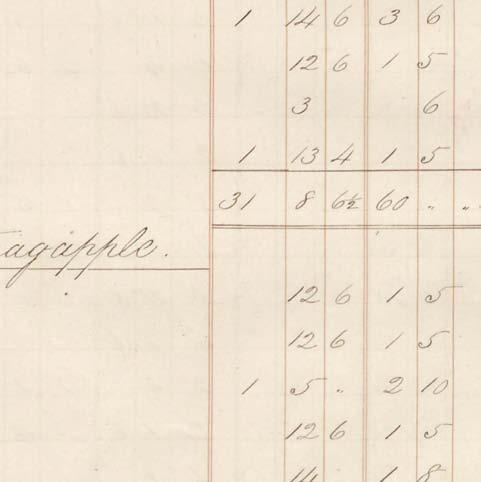 1 14 6 3 6
12 6 1 5
3 6
1 13 4 1 5
31 8 6½ 60 " "
agapple.
12 6 1 5
12 6 1 5
1 5 " 2 10
12 6 1 5
14 1 8